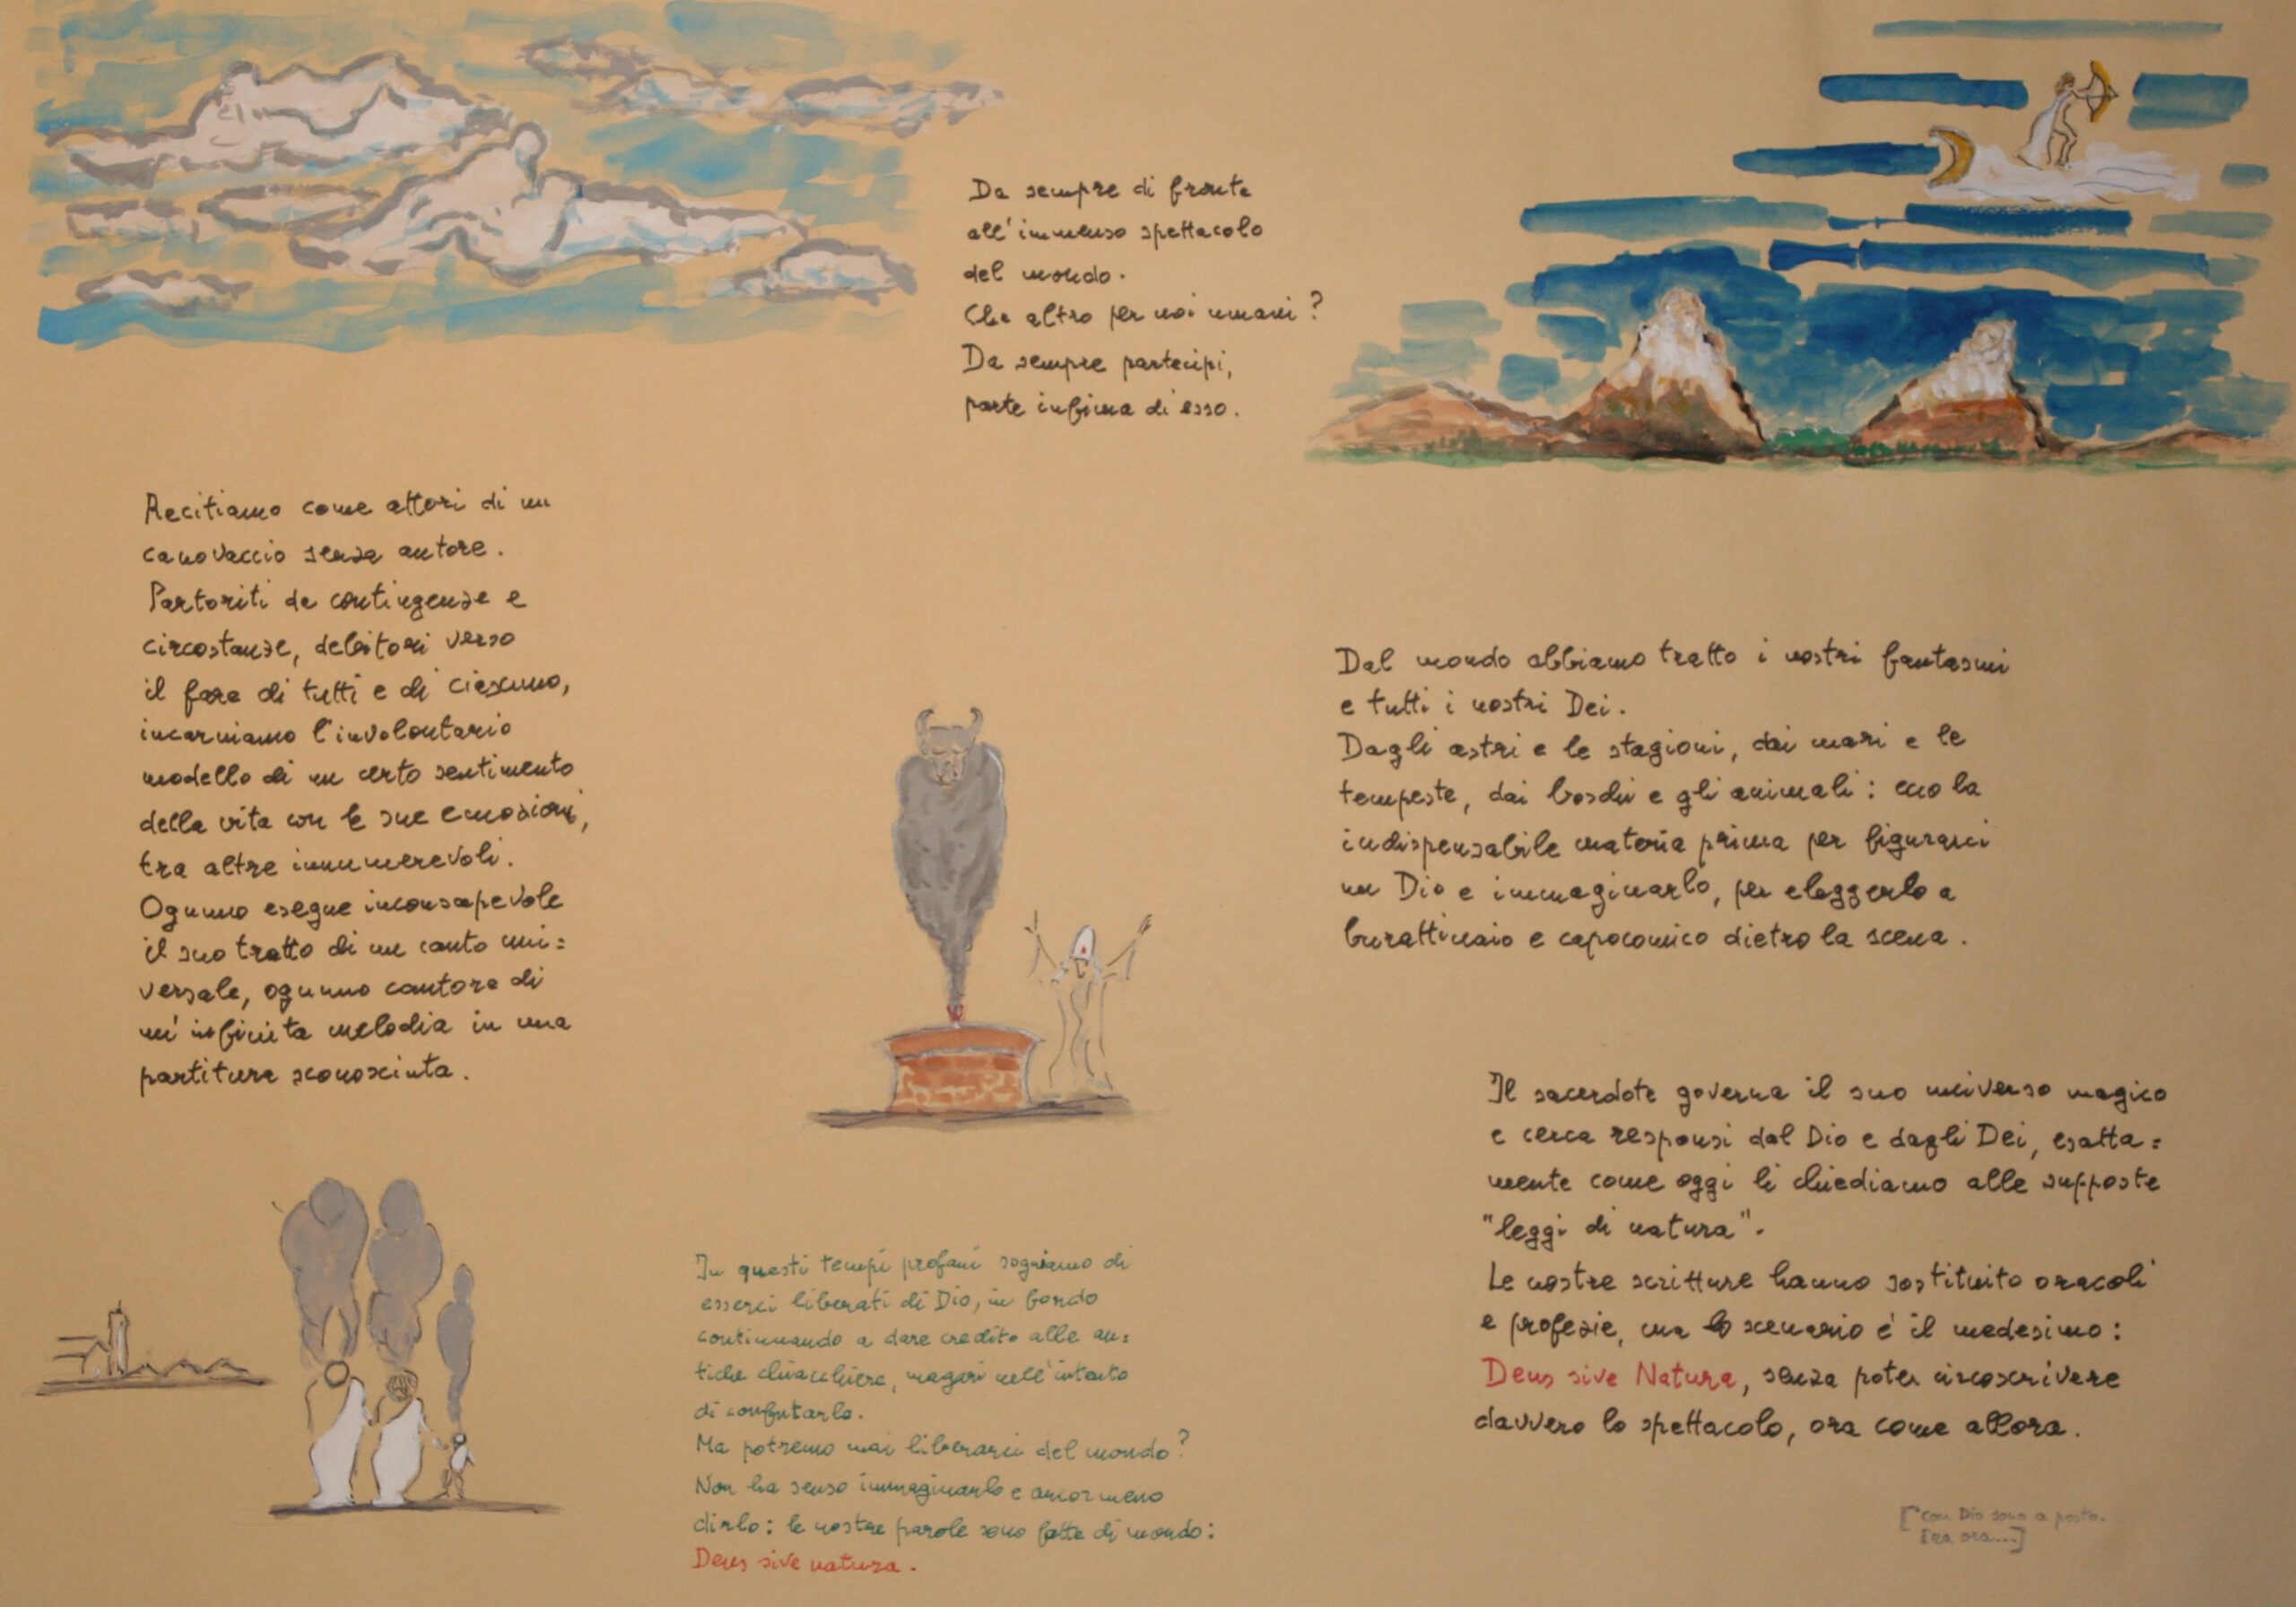 Da sempre di fronte
all'immenso spettacolo
del mondo.
Che altro per noi umani?
Da sempre partecipi,
parte infima di esso.
Recitiamo come attori di un
canovaccio senza autore.
Partoriti da contingenze e
circostanze, debitori verso
il fare di tutti e di ciascuno,
incarniamo l'involontario
modello di un certo sentimento
della vita con le sue emozioni,
tra altre innumerevoli.
Ognuno esegue inconsapevole
il suo tratto di un canto uni=
versale, ognuno cantore di
un'infinita melodia in una
partitura sconosciuta.
Dal mondo abbiamo tratto i nostri fantasmi
e tutti i nostri Dei.
Dagli astri e le stagioni, dai mari e le
tempeste, dai boschi e gli animali: ecco la
indispensabile materia prima per figurarci
un Dio e immaginarlo, per eleggerlo a
burattinaio e capocomico dietro la scena.
Il sacerdote governa il suo universo magico
e cerca responsi dal Dio e dagli Dei, esatta=
mente come oggi li chiediamo alle supposte
"leggi di natura".
Le nostre scritture hanno sostituito oracoli
e profezie, ma lo scenario è il medesimo:
Deus sive Natura, senza poter circoscrivere
davvero lo spettacolo, ora come allora.
In questi tempi profani sogniamo di
esserci liberati di Dio, in fondo
continuando a dare credito alle an=
tiche chiacchiere, magari nell'intento
di confutarle.
Ma potremo mai liberarci del mondo?
Non ha senso immaginarlo e ancor meno
dirlo: le nostre parole sono fatte di mondo:
Deus sive natura.
[con Dio sono a posto.
Era ora...]